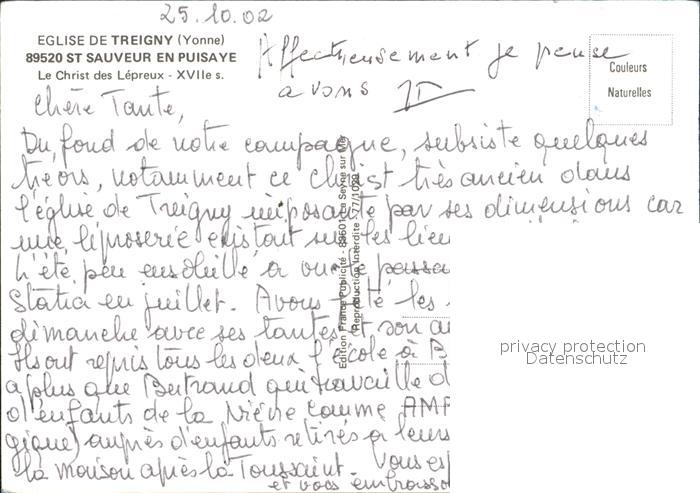 25.10.02
EGLISE DE TREIGNY (Yonne)
89520 ST SAUVEUR EN PUISAYE
Le Christ des Lépreux - XVIIe s.
Affectueusement je pense
à vous
Couleurs
Naturelles
Chère Tante,
Du fond de notre campagne, subsiste quelques
trésors, notamment ce Christ très ancien dans
l'église de Treigny imposante par ses dimensions car
une léproserie existait sur les lieu
L'été peu ensoleillé a vu le passa
en juillet. Avons fêté les
dimanche avec ses tantes et son
Ils ont repris tous les deux l'école à B
a plus que Bertrand qui travaille d
d'enfants de la Nièvre comme AMP
gique) auprès d'enfants retirés à leurs
la maison après la Toussaint. Vous es
et vous embrasso
Edition France Publicité - 83501 La Seyne sur Mer
Reproduction Interdite
privacy protection
Datenschutz